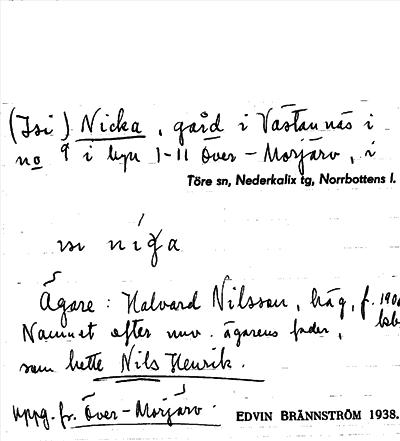 (Isi) Nicka, gård i Västannäs i
no 9 i byn 1-11 Över-Morjärv, i
Töre sn, Nederkalix tg, Norrbottens l.
ısı níga
Ägare: Halvard Nilsson, häg, f. 1906
Namnet efter nuv. ägarens fader,
som hette Nils Henrik.
uppg. fr. Över-Morjärv.
EDVIN BRÄNNSTRÖM 1938.